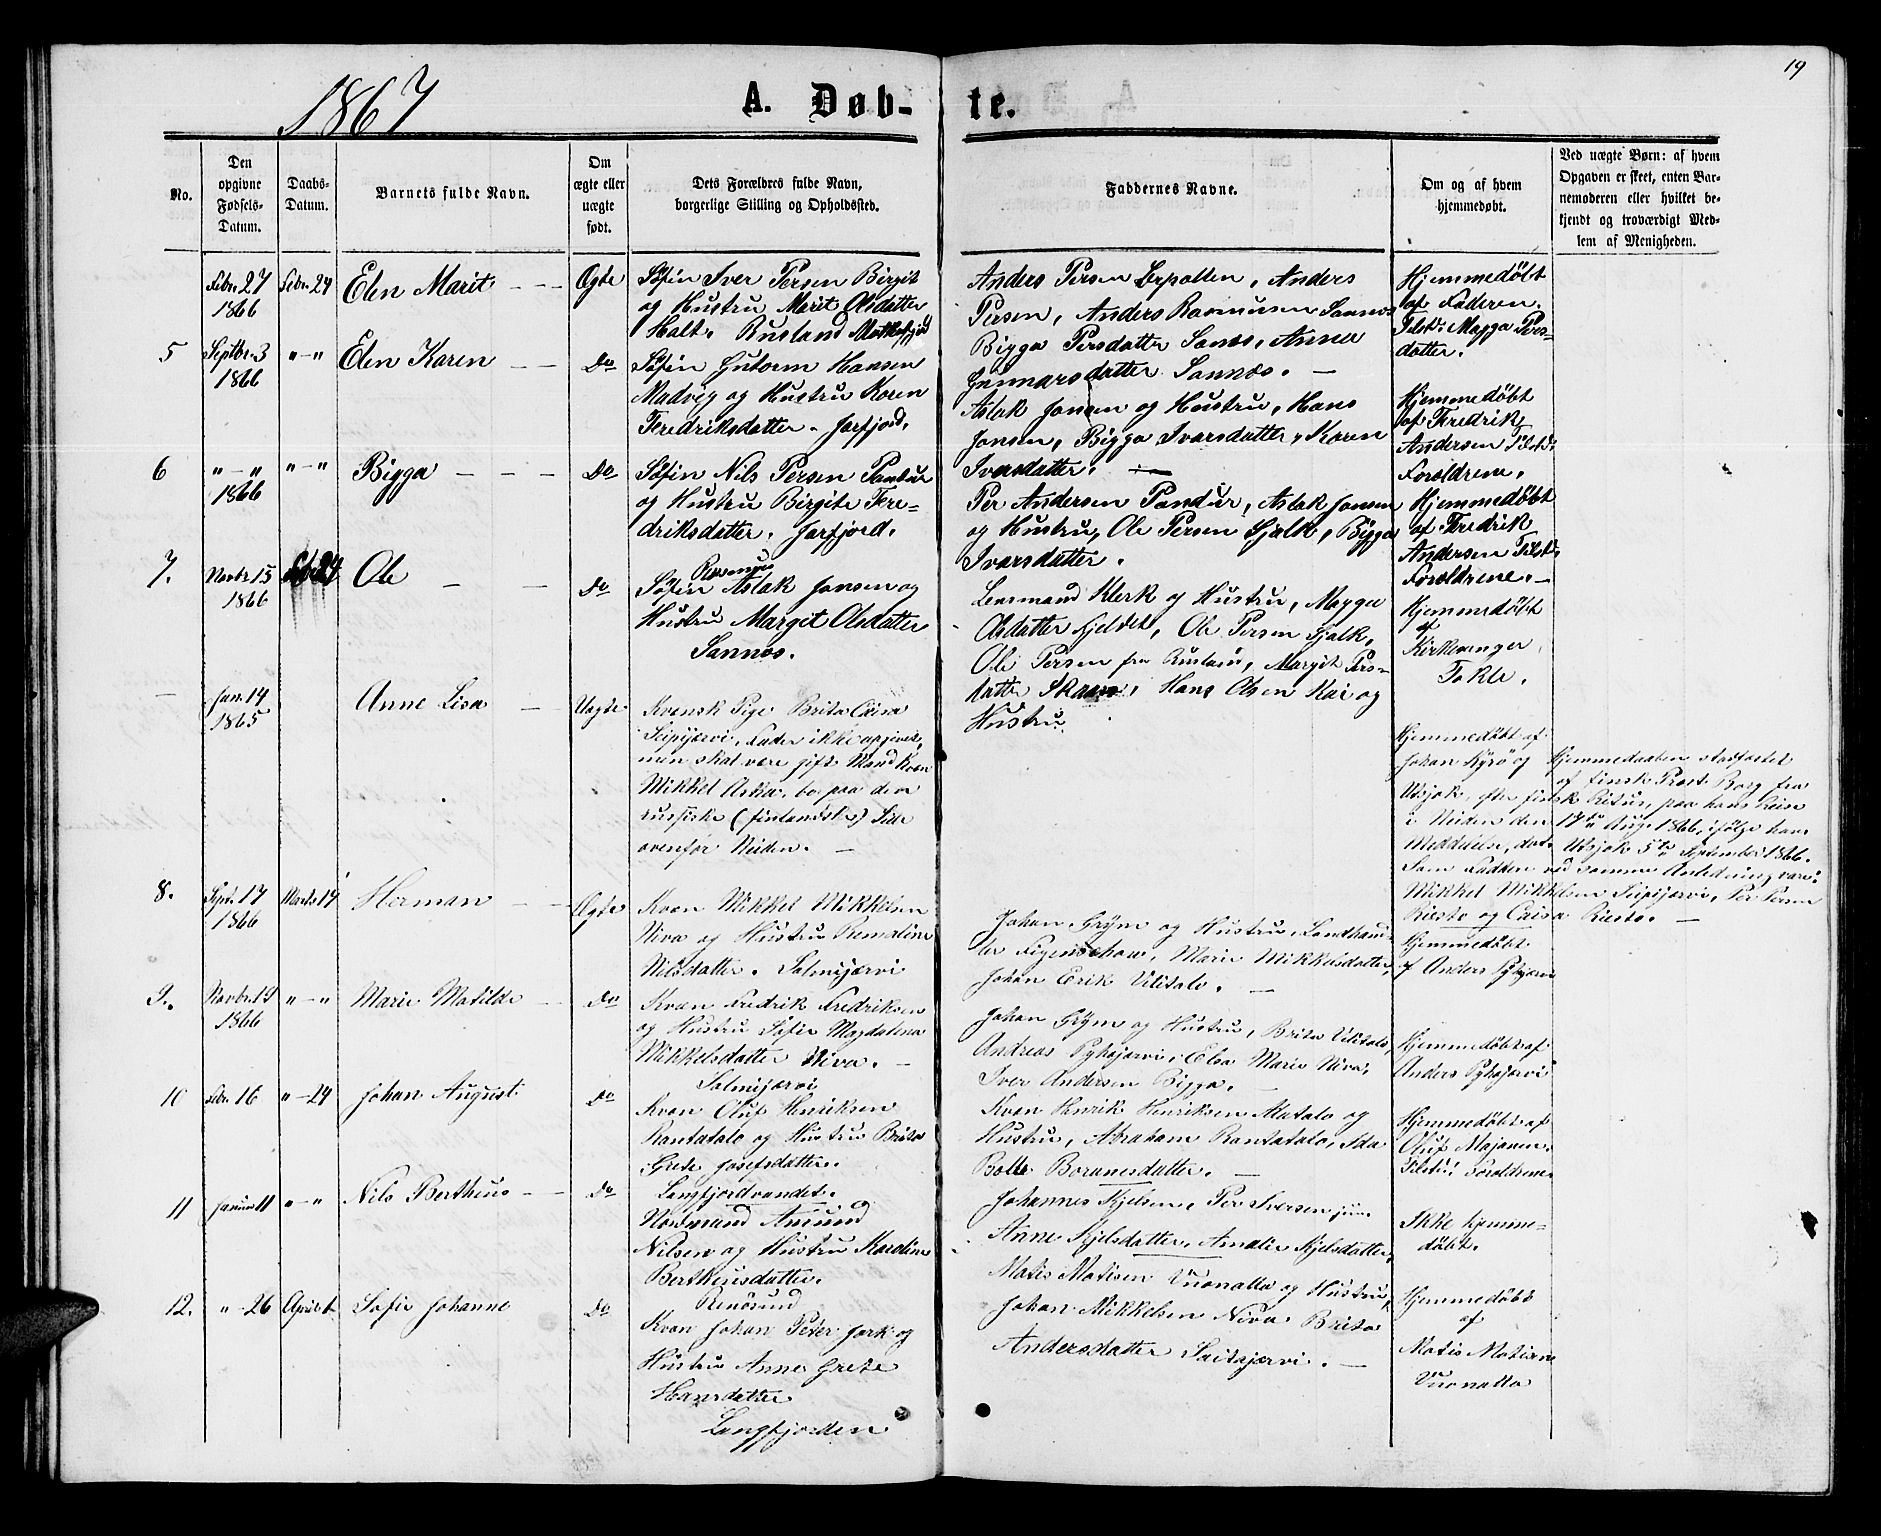 19
1867
A. Døb-
te.
No.
Den
opgivne
Fødsels-
Datum.
Daabs-
Datum.
Barnets fulde Navn.
Om
ægte eller
uægte
født.
Dets Forældres fulde Navn,
borgerlige Stilling og Opholdssted.
Faddernes Navne.
Om og af hvem
hjemmedøbt.
Ved uægte Børn: af hvem
Opgaven er skeet, enten Bar-
nemoderen eller hvilket be-
kjendt og troværdigt Med-
lem af Menigheden.
Febr. 27
1866
Febr. 24
Elen Marit
Ægte
Søfin Iver Persen Birgit
og Hustru Marit Olsdatter
Halt. Rusland
Anders Persen Lerpollen, Anders
Persen, Anders Rasmusen Sannæs
Bigga Persdatter Sanæs, Anna
Gunnarsdatter Sannæs. —
Hjemmedøbt
af Faderen.
Tilst: Magga Pers-
datter.
5
Septbr. 3
1866
„ — „
Elen Karen
Do
Søfin Guttorm Hansen
Madvig og Hustru Karen
Feredriksdatter. Jarfjord.
Aslak Jonsen og Hustru, Hans
Jonsen, Bigga Ivarsdatter, Karen
Ivarsdatter.
Hjemmedøbt
af Feredrik
Andersen Tilst:
Forældrene.
6
„ — „
1866
„ — „
Bigga
Do
Søfin Nils Persen Pandur
og Hustru Birgite Fere-
driksdatter. Jarfjord.
Per Andersen Pandur, Aslak Jonsen
og Hustru, Ole Persen Gjalk, Bigga
Ivarsdatter.
Hjemmedøbt
af Feredrik
Andersen Tilst:
Forældrene. —
7.
Novbr. 15
1866
Febr. 24
Ole
Do
Rasmus
Søfin Aslak Jonsen og
Hustru Margit Olsdatter
Sannæs.
Lensmand Klerk og Hustru, Magga
Olsdatter Fjeldet, Ole Persen Gjalk,
Ole Persen fra Rusland, Margit Pers-
datter, Hans Olsen Kai og
Hustru.
Hjemmedøbt
af
Kirkesanger
Tokle.
—
Jan. 14
1865
Anne Lisa
Uægte
Kvensk Pige Brita Caisa
Seipijærvi, Fader ikke opgivet,
men skal være gift Mand Kvæn
Mikkel Aska, bo. paa den
russiske (finlandske) Side
ovenfor Neiden. —
Hjemmedøbt af
Johan Kyrø og
Hjemmedaaben stadfæstet
af finsk Præst Borg fra
Utsjok, efter finsk Ritus, paa hans Reise
i Neiden den 17de Aug. 1866, ifølge hans
Meddelelse, dat. Utsjok 5te September 1866.
Som Faddere ved samme Anledning vare:
Mikkel Mikkelsen Seipijærvi, Per Persen
Riesto og Caisa Riesto. —
8.
Sept. 17
1866
Marts 17
Herman
Ægte
Kvæn Mikkel Mikkelsen
Niva og Hustru Remoline
Nilsdatter. Salmijærvi
Johan Grym og Hustru, Landhand-
ler Figenschow, Marie Mikkelsdatter,
Johan Erik Vilitalo. —
Hjemmedøbt
af Anders Pyhäjærvi
9.
Novbr. 19
1866
„ — „
Marie Matilde
Do
Kvæn Fredrik Fredriksen
og Hustru Sofie Magdalena
Mikkelsdatter Niva. —
Salmijærvi
Johan Grym og Hustru, Brita Vilitalo,
Andreas Pyhajærvi, Elsa Marie Niva,
Iver Andersen Bigga.
Hjemmedøbt af
Anders Pyhajærvi
10
Febr. 16
„ — 24
Johan August
Do
Kvæn Oluf Henriksen
Rantatalo og Hustru Brita
Grete Josefsdatter.
Langfjordvandet.
Kvæn Henrik Henriksen Alatalo og
Hustru, Abraham Rantatalo, Ida
Bolle. —
Hjemmedøbt af
Oluf Majanen.
Tilst: Forældrene
11
Januar 11
„ — „
Nils Bertheus
Do
Nordmand Amund
Nilsen og Hustru Karoline
Bertheusdatter.
Renøsund
Johannes Kjelsen, Per Iversen jun.
Anne Kjelsdatter, Amalie Kjelsdatter,
Ikke hjemme-
døbt.
12.
„ — 26
April 1
Sofie Johanne
Do
Kvæn Johan Peter Jark og
Hustru Anne Grete
Hansdatter
Langfjorden
Matis Matisen Vuonalla og Hustru,
Johan Mikkelsen Niva Brita
Andersdatter Saitajærvi. —
Hjemmedøbt
af
Matis Matisen
Vuonalla